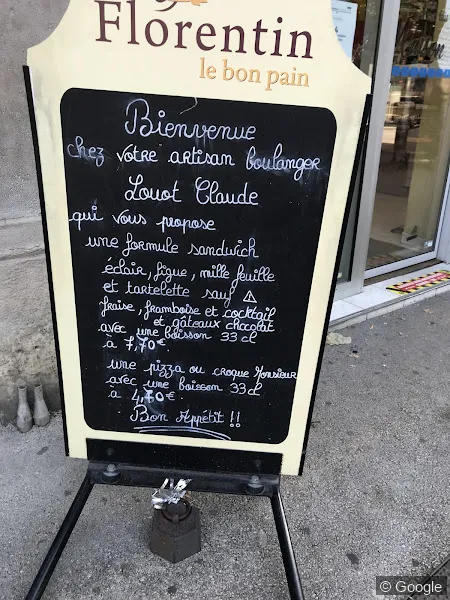 Florentin
le bon pain
Bienvenue
chez votre artisan boulanger
Louot Claude
qui vous propose
une formule sandwich
éclair, figue, mille feuille
et tartelette sauf ⚠
fraise, framboise et cocktail
et gâteaux chocolat
avec une boisson 33 cl
à 7,70€
une pizza ou croque Monsieur
avec une boisson 33cl
à 4,70€
Bon Appétit !!
© Google